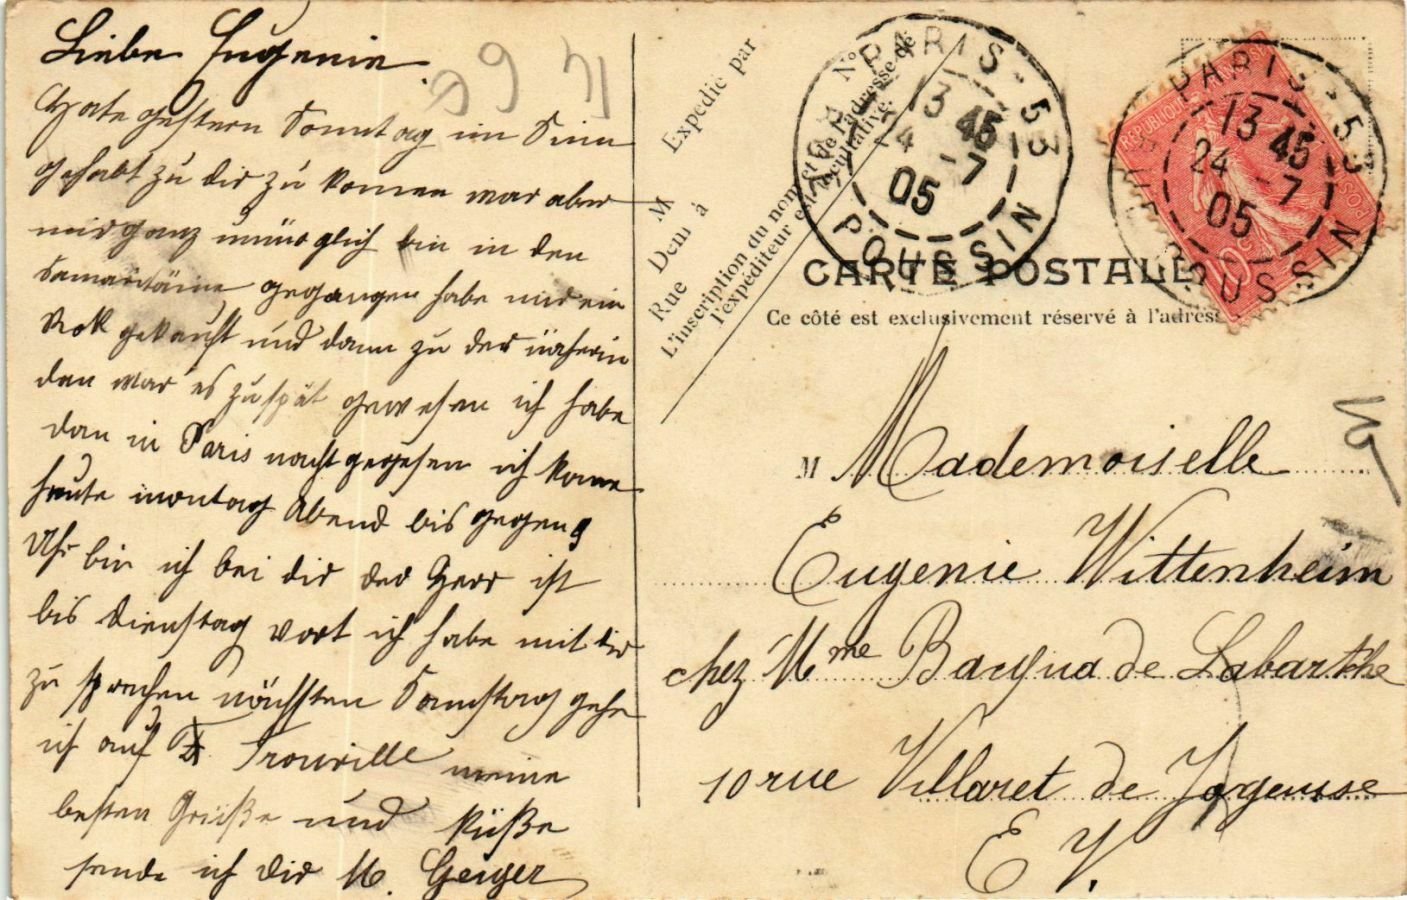 Liebe Eugenie.
Hate gestern Sonntag im Sinn
gehabt zu dir zu komen war aber
mir ganz unmöglich bin in den
Samaritäine gegangen habe mir ein
Rok gekauft und dann zu der näherin
dan war es zu spät gewesen ich habe
dan in Paris nacht gegesen ich kome
heute montag Abend bis gegen 9
Uhr bin ich bei dir der Herr ist
bis Dienstag vort ich habe mit dir
zu sprechen nächsten Samstag gehe
ich auf Trouville meine
besten Grüße und Küße
sende ich dir M. Geiger
99 71
Expedié par
M
Demt à
Rue
N°
L'inscription du nom et de l'adresse de
l'expéditeur est facultative.
PARIS - 53
13 45
24 - 7
05
R. POUSSIN
PARIS - 53
13 45
24 - 7
05
POUSSIN
REPUBLIQUE
POSTES
10
CARTE POSTALE
Ce côté est exclusivement réservé à l'adresse
M Mademoiselle
Eugenie Wittenheim
chez Mme Bacqua de Labarthe
10 rue Villaret de Joyeusse
E V.